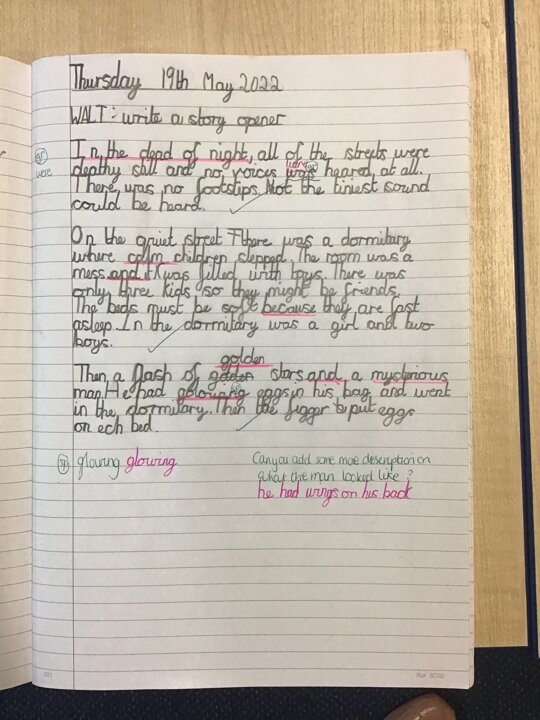 Thursday 19th May 2022
WALT: write a story opener
gr In the dead of night, all of the streets were
were deathy still and no voices was were gr heared, at all.
There was no footstips. Not the tiniest sound
could be heard.
On the quiet street There was a dormitary
where calm children slepped. The room was a
mess and it was filled with boys. There was
only three kids, so they might be friends.
The beds must be soft because they are fast
asleep. In the dormitary was a girl and two
boys.
golden
Then a flash of golden stars and, a mysterious
man. He had glouwing eggs in his bag and went
in the dormitary. Then the figger put eggs
on ech bed.
sp glowing glowing
Can you add some more description on
what the man looked like?
he had wings on his back